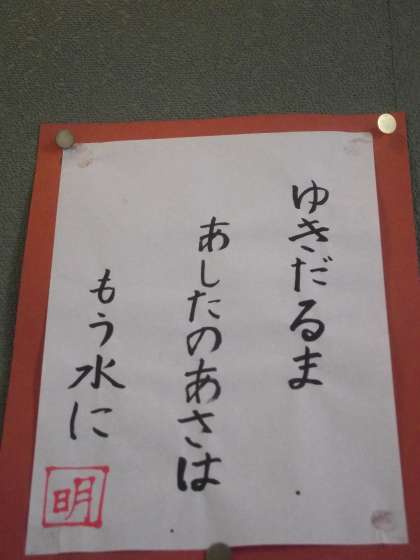 ゆきだるま
あしたのあさは
もう水に
明